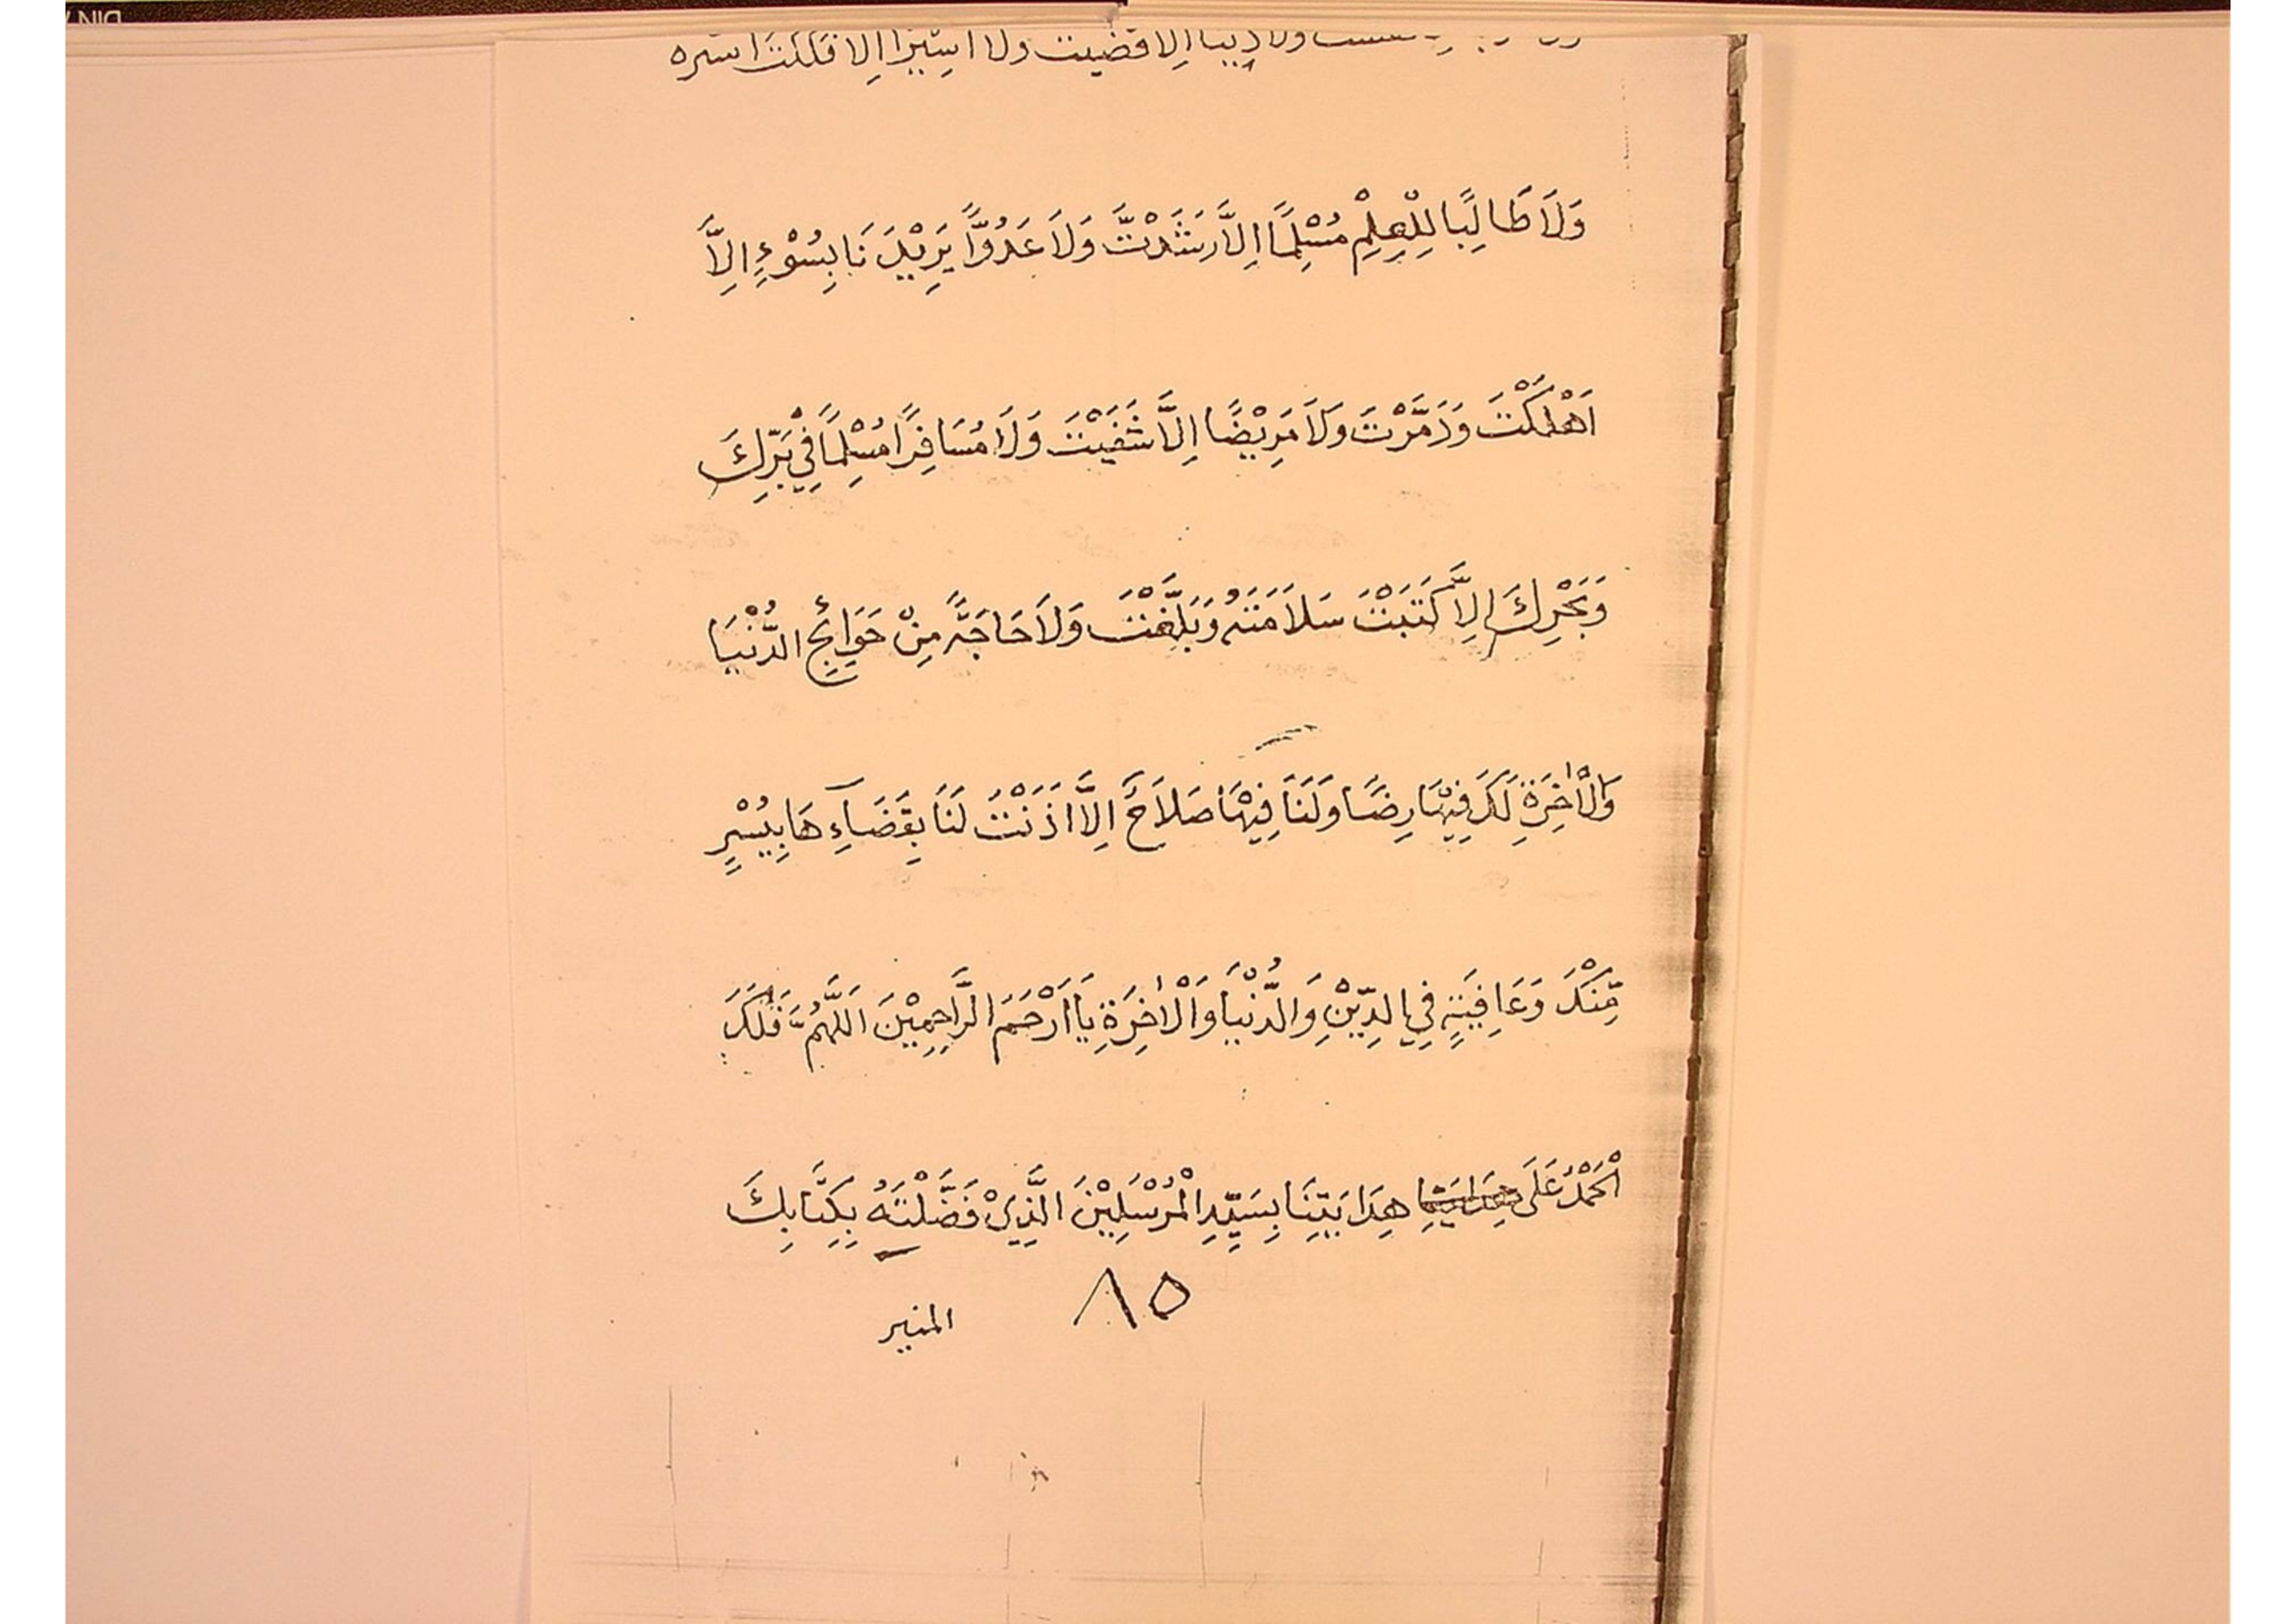 ولا دينا الا قضيت ولا اسيرا الا فككت اسره
وَلَا طَالِبًا لِلْعِلْمِ مُسْلِمًا اِلَّا رَشَدْتَّ وَلَا عَدُوًّا يَرِيْدَ نَا بِسُوْءٍ اِلَّا
اَهْلَكْتَ وَدَمَّرْتَ وَلَا مَرِيْضًا اِلَّا شَفَيْتَ وَلَا مُسَافِرًا مُسْلِمًا فِيْ بَرِّكَ
وَبَحْرِكَ اِلَّا كَتَبْتَ سَلَامَتَهُ وَبَلَّغْتَ وَلَا حَاجَةً مِنْ حَوَائِجِ الدُّنْيَا
وَالْاٰخِرَةِ لَكَ فِيْهَا رِضًا وَلَنَا فِيْهَا صَلَاحٌ اِلَّا اَذَنْتَ لَنَا بِقَضَآءِ هَا بِيُسْرٍ
مِّنْكَ وَعَافِيَةٍ فِي الدِّيْنِ وَالدُّنْيَا وَالْاٰخِرَةِ يَا اَرْحَمَ الرَّاحِمِيْنَ اَللّٰهُمَّ فَلَكَ
الْحَمْدُ عَلَى هِدَايَتِنَا بِسَيِّدِ الْمُرْسَلِيْنَ الَّذِيْ فَضَّلْتَهُ بِكِتَابِكَ
٨٥ المنير